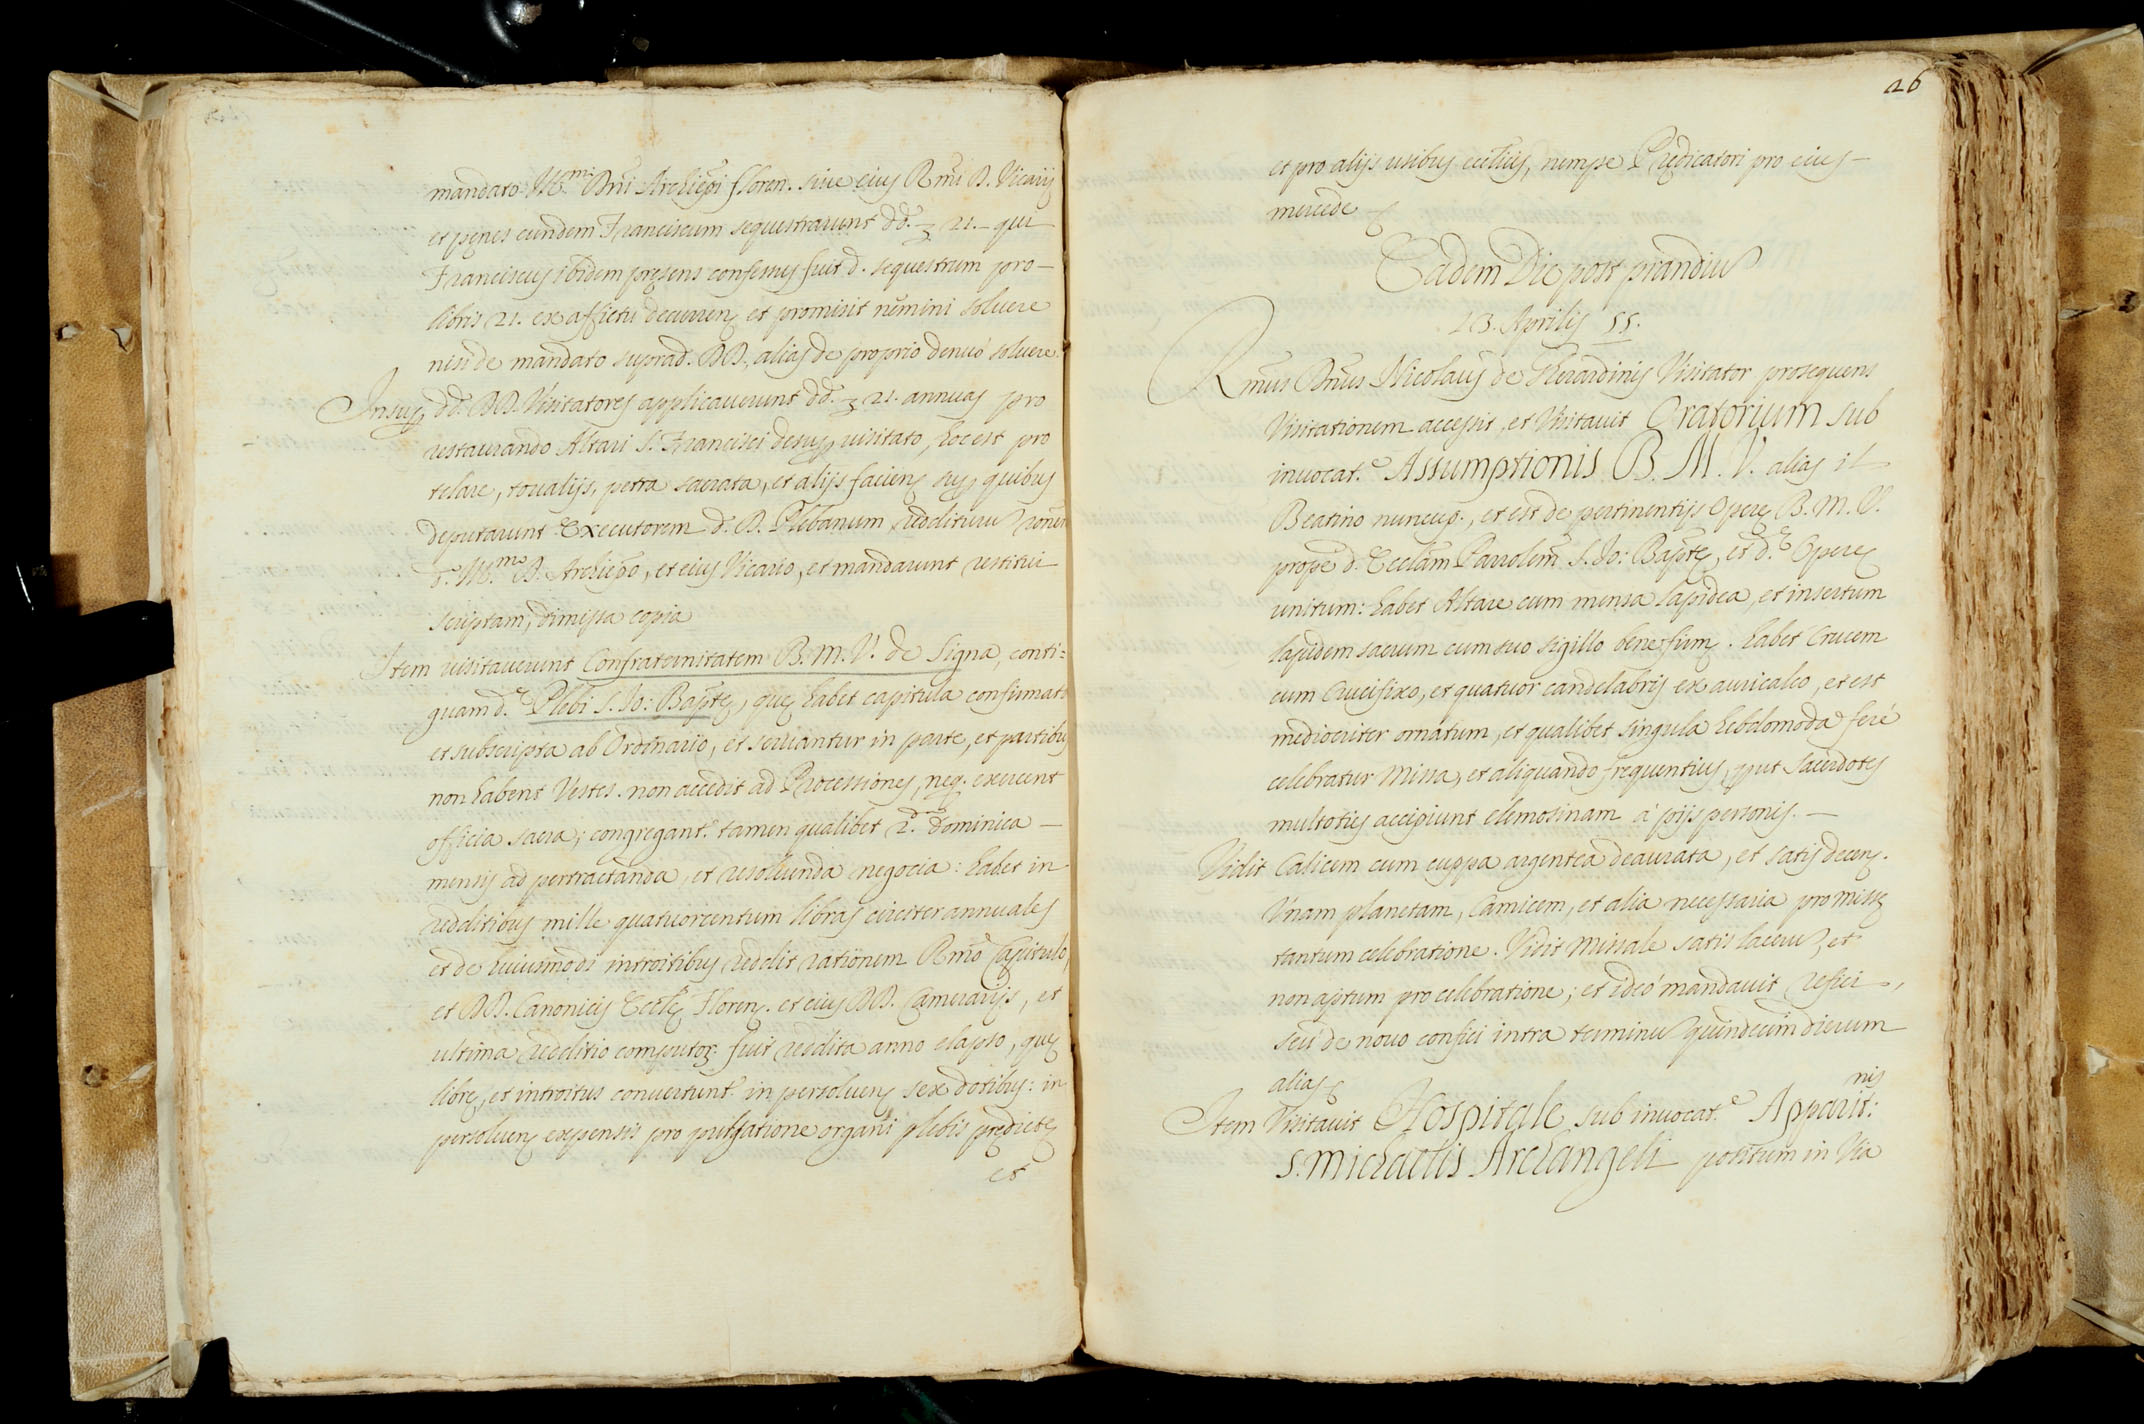 mandato Ill.mi Dni Archiepi Floren. siue eius Rmi D. Vicarij
et penes eundem Franciscum sequestrarunt dd. 21. qui
Franciscus ibidem presens confessus fuit d. sequestrum pro
libris 21. ex affictu decurren et promisit nemini soluere
nisi de mandato suprad. DD., alias de proprio denuò soluere.
Insup dd. DD. Visitatores applicauerunt dd. 21. annuas pro
restaurando Altari S. Francisci desup visitato, hoc est pro
telare, toualijs, petra sacrata, et alijs facien sup quibus
deputarunt Executorem d. D. Plebanum redditurū ronem
d. Ill.mo D. Archiepo, et eius Vicario, et mandarunt restitui
scriptam, dimissa copia
Item visitauerunt Confraternitatem B. M. V. de Signa, conti=
guam d.e Plebi S. Io: Bapte, que habet capitula confirmata
et subscripta ab Ordinario, et seruantur in parte, et partibus
non habent Vestes. non accedit ad Processiones, neq. exercent
officia sacra; congregant.r tamen qualibet 2.da dominica
mensis ad pertractanda, et resoluenda negocia: habet in
redditibus mille quatuorcentum libras circiter annuales
et de huiusmodi introitibus reddit rationem Rmo Capitulo,
et DD. Canonicis Eccle Floren. et eius DD. Camerarijs, et
ultima redditio computor. fuit reddita anno elapso, que
libre, et introitus conuertunt.r in persoluen sex dotibus: in
persoluen expensis pro pulsatione organi plebis predicte
et
26
et pro alijs usibus ecclīus, nempe Predicatori pro eius
mercede
Eadem Die post prandiū
23. Aprilis ss.
Rmus Dnus Nicolaus de Gherardinis Visitator prosequens
Visitationem accessit, et Visitauit Oratorium sub
inuocat.e Assumptionis B. M. V. alias il
Beatino nuncup., et est de pertinentijs Opere B. M. V.
prope d. Ecclam Parrolem S. Io: Bapte, et d.e Opere
unitum: habet Altare cum mensa lapidea, et insertum
lapidem sacrum cum suo sigillo bene firm. habet Crucem
cum Crucifixo, et quatuor candelabris ex auricalco, et est
mediocriter ornatum, et qualibet singula hebdomoda ferè
celebratur Missa, et aliquando frequentius, put Sacerdotes
multoties accipiunt elemosinam à pijs personis.
Vidit Calicem cum cuppa argentea deaurata, et satis decen.
Vnam planetam, Camicem, et alia necessaria pro Misse
tantum celebratione. Vidit Missale satis lacerū, et
non aptum pro celebratione; et ideò mandauit refici,
seù de nouo confici intra terminū quindecim dierum
alias
Item Visitauit Hospitale sub inuocat.e Apparit:nis
S. Michaelis Archangeli positum in Via